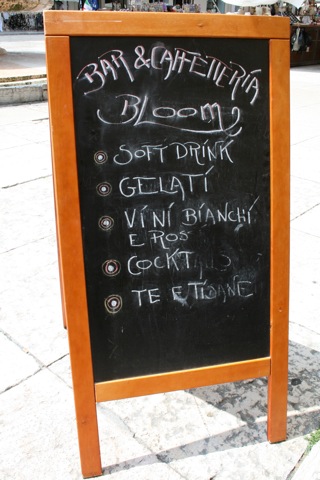 BAR & CAFFETTERÍA
BLOOM
SOFT DRINK
GELATÍ
VÍNÍ BÍANCHÍ
E ROS
COCKTA S
TE E TISANE